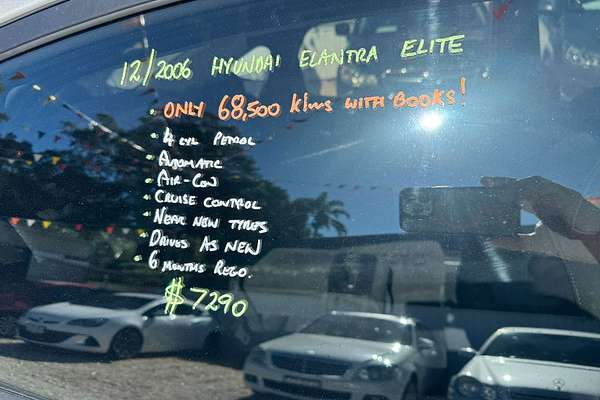 12/2006 HYUNDAI ELANTRA ELITE
• ONLY 68,500 klms WITH BOOKS!
• 4 CYL PETROL
• AUTOMATIC
• AIR-CON
• CRUISE CONTROL
• NEAR NEW TYRES
• DRIVES AS NEW
• 6 MONTHS REGO.
$7290